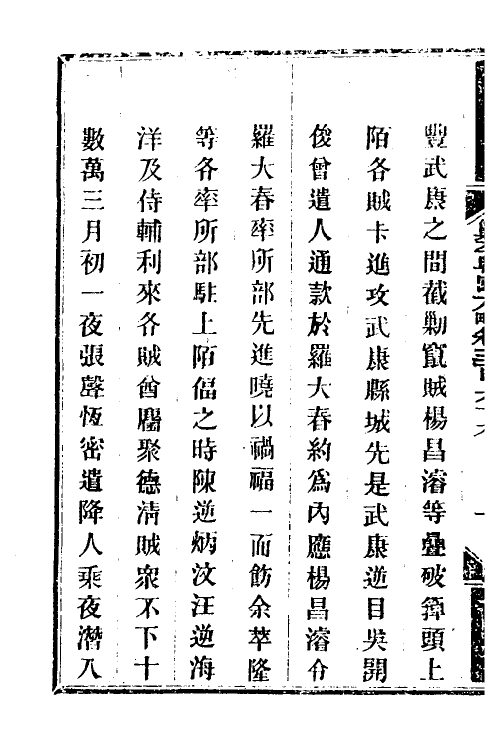 豐武康之間截勦竄賊楊昌濬等疊破簰頭上
陌各賊卡進攻武康縣城先是武康逆目吳開
俊曾遣人通款於羅大春約爲內應楊昌濬令
羅大春率所部先進曉以禍福一面飭余萃隆
等各率所部駐上陌偪之時陳逆炳汶汪逆海
洋及侍輔利來各賊酋麕聚德清賊衆不下十
數萬三月初一夜張聲恆密遣降人乘夜潛入